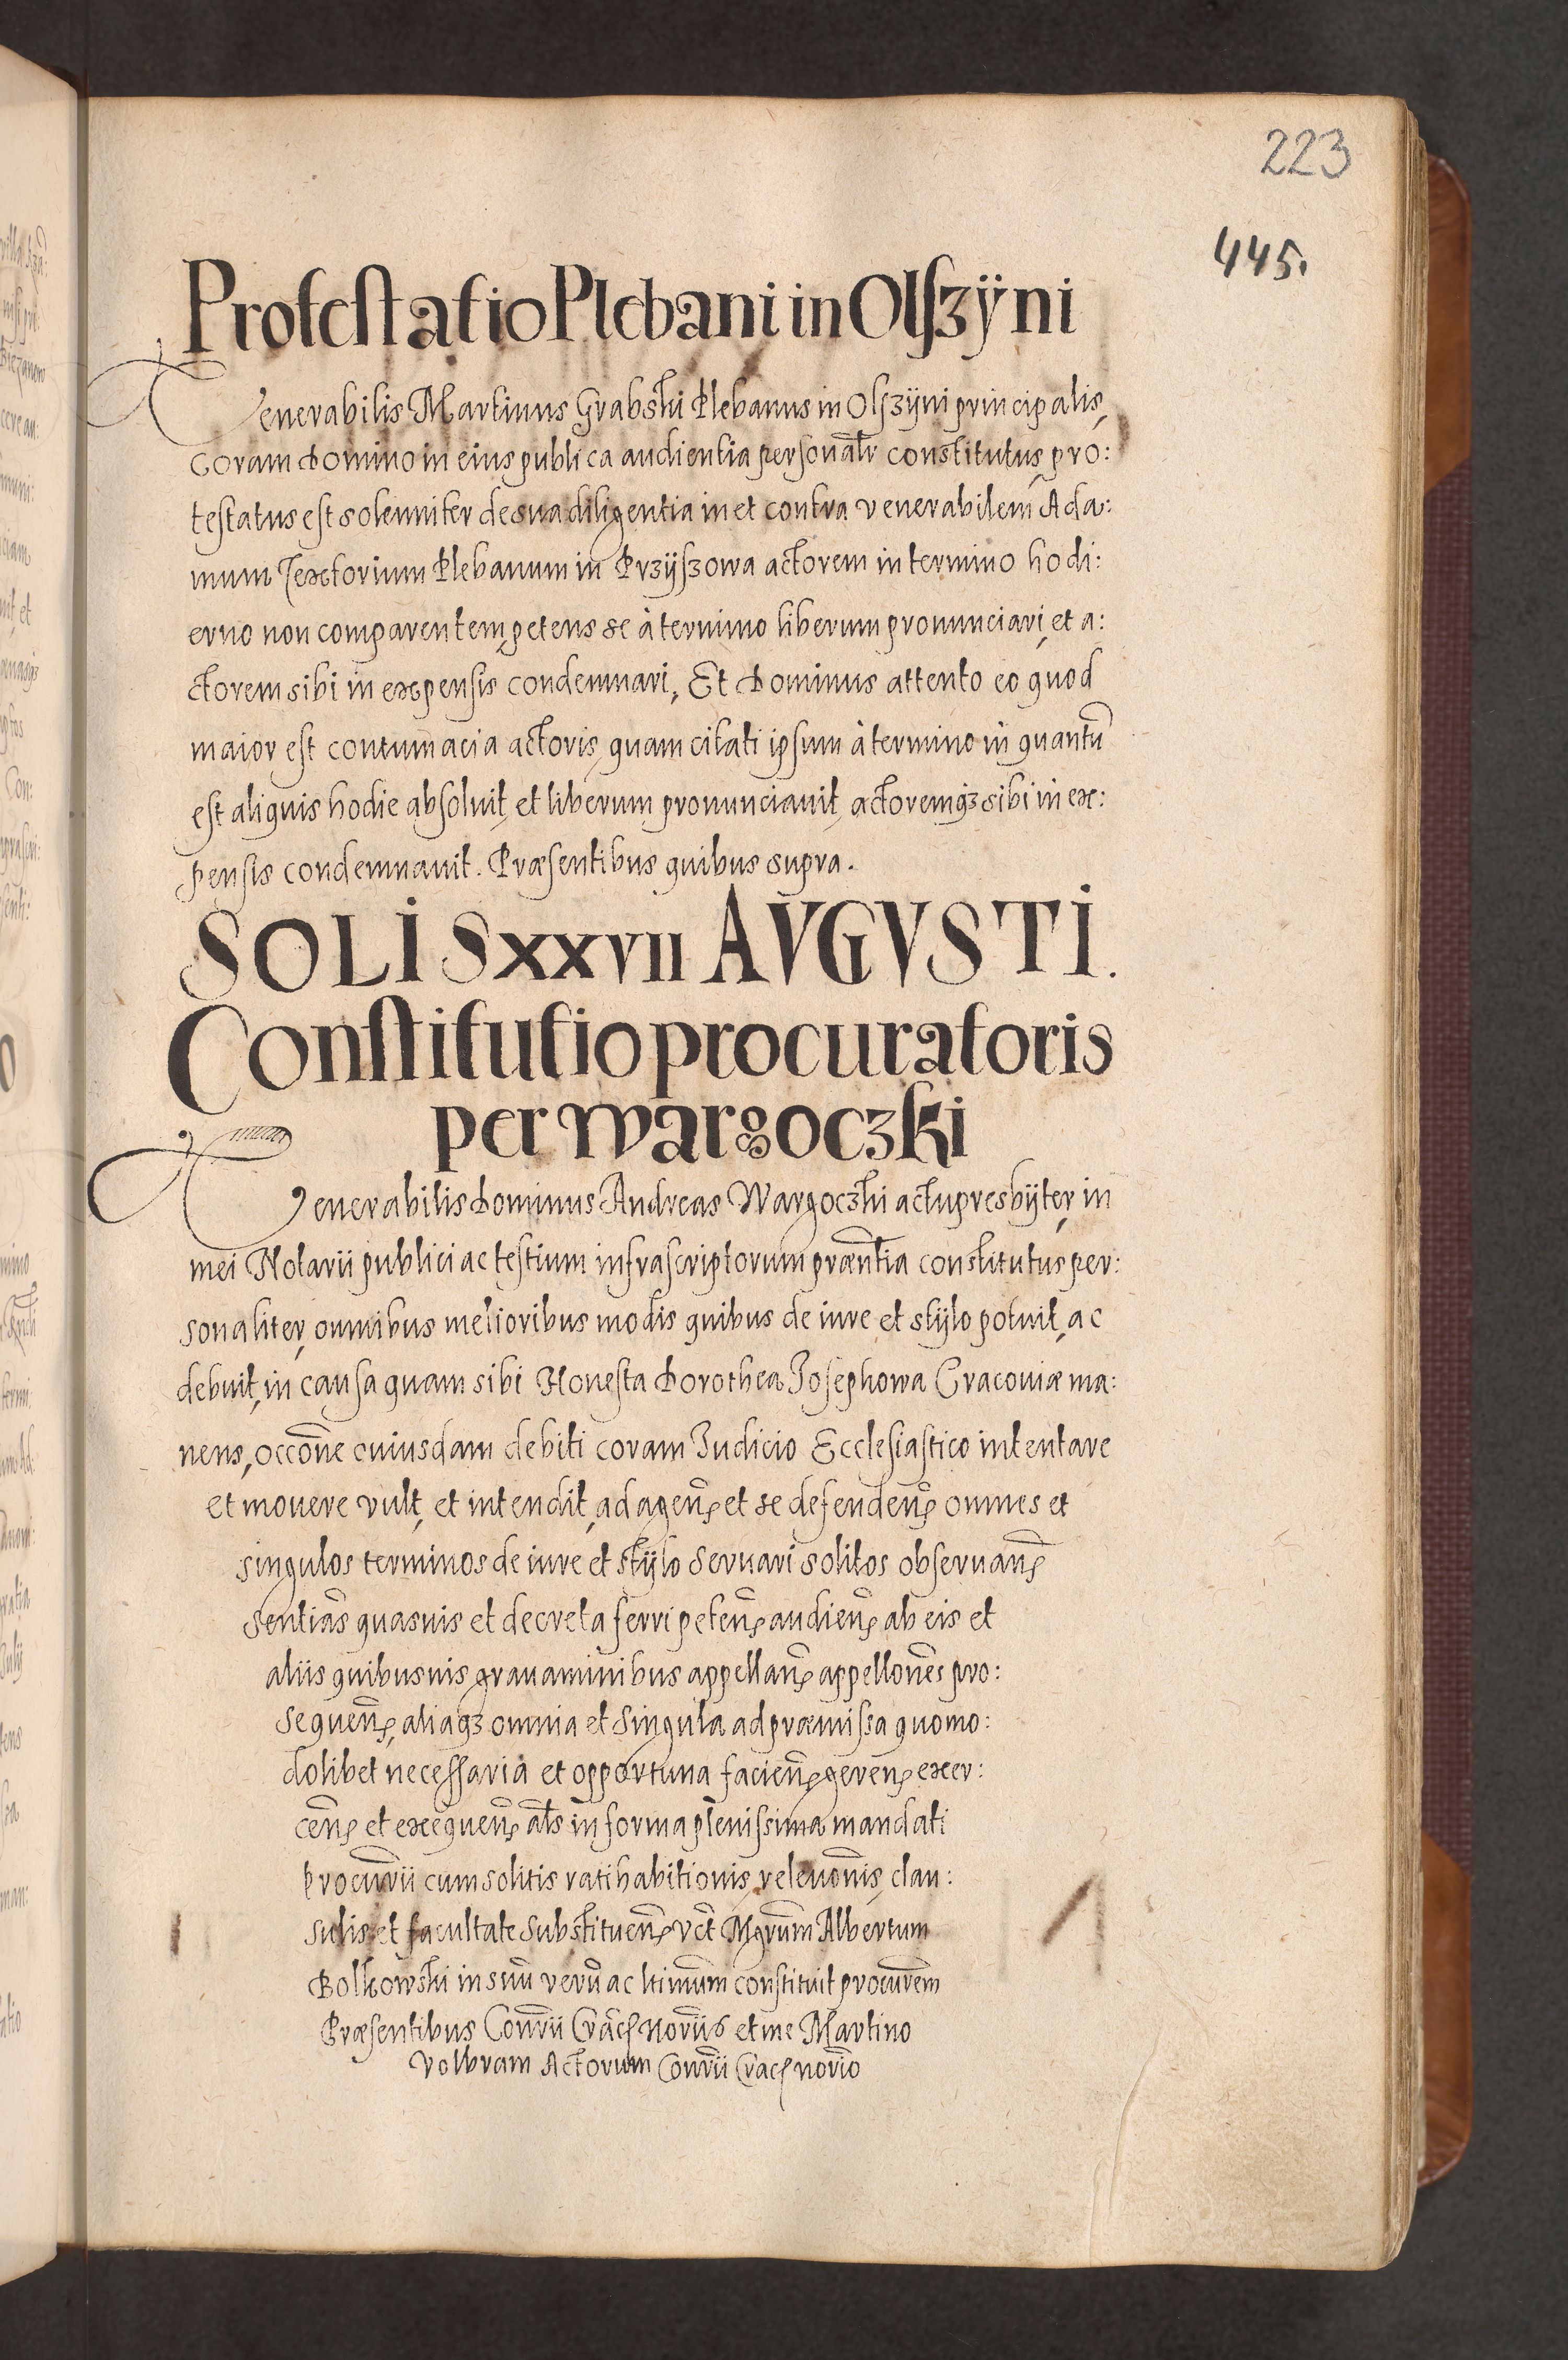 223
445.
Protestatio Plebani in Olſzÿni
Venerabilis Martinus Grabski Plebanus in Olſzÿni principalis,
Coram Domino in eius publica audientia perſonal̃r constitutus, pro:
teſtatus eſt solenniter de sua diligentia in et contra venerabilem Ada:
mum Textorium Plebanum in Przÿſzowa actorem in termino hodi:
erno non comparentem, petens se à termino liberum pronunciari, et a:
ctorem sibi in expensis condemnari, Et Dominus attento eo quod
maior est contumacia actoris, quam citati ipsum à termino in quantũ
eſt aliquis hodie abſoluit, et liberum pronunciauit, actoremqꝫ sibi in ex:
penſis condemnauit. Præſentibus quibus supra.
SOLIS XXVII AVGVSTI.
Conſtitutio procuratoris
per Wargoczki
Venerabilis Dominus Andreas Wargoczki actu presbÿter, in
mei Notarii publici ac teſtium infraſcriptorum præñtia constitutus per:
sonaliter, omnibus melioribus modis quibus de iure et stÿlo potuit, ac
debuit, in cauſa quam sibi Honeſta Dorothea Joſephowa Cracouiæ ma:
nens, occõne cuiusdam debiti coram Iudicio Eccleſiaſtico intentare
et mouere vult, et intendit, ad ageñꝭ et se defendeñꝭ omnes et
singulos terminos de iure et stÿlo seruari solitos obſeruañꝭ
sentias̃ quasuis et decreta ferri peteñꝭ audieñꝭ ab eis et
aliis quibusuis grauaminibus appellañꝭ appellões pro:
sequeñꝭ, aliaqꝫ omnia et singula ad præmiſſa quomo:
dolibet neceſſaria et opportuna facieñꝭ gereñꝭ exer:
ceñꝭ et exequeñꝭ al̃s in forma pleniſsima mandati
procur̃ii cum solitis ratihabitionis, releuõnis, clau:
sulis, et facultate substitueñꝭ vct̃ Mgrũm Albertum
Bolkowski in suũ verũ ac ltimũm conſtituit procur̃em
Præſentibus Conr̃ii Crãcꝭ Nor̃iis et me Martino
Volbram Actorum Conr̃ii Cracꝭ nor̃io